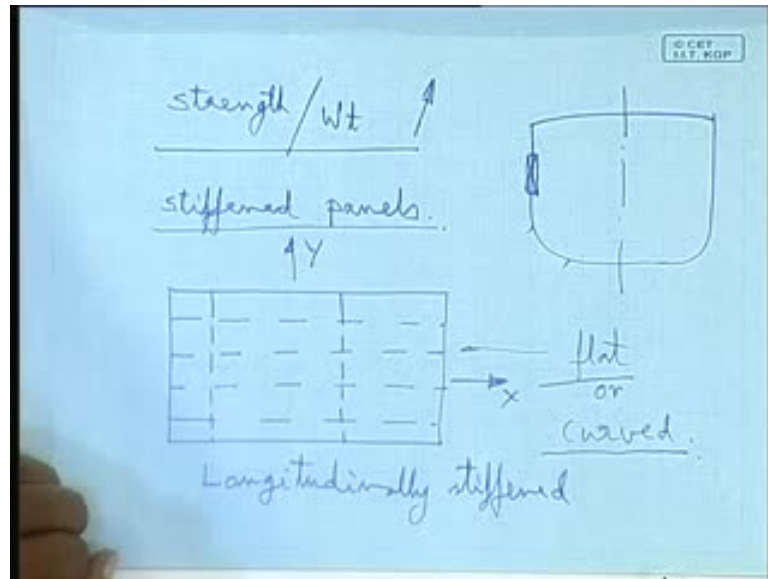 © CET
I.I.T. KGP
strength / Wt
stiffened panels.
Y
X
flat
or
curved.
Longitudinally stiffened